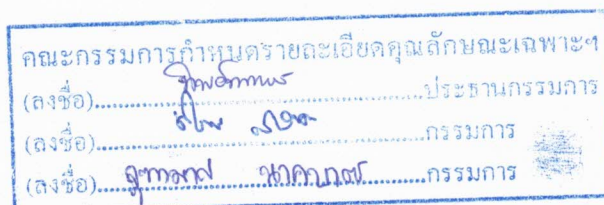 คณะกรรมการกำหนดรายละเอียดคุณลักษณะเฉพาะฯ
(ลงชื่อ)..............................ประธานกรรมการ
(ลงชื่อ)..............................กรรมการ
(ลงชื่อ)....จุฑามาศ นาคบาตร....กรรมการ